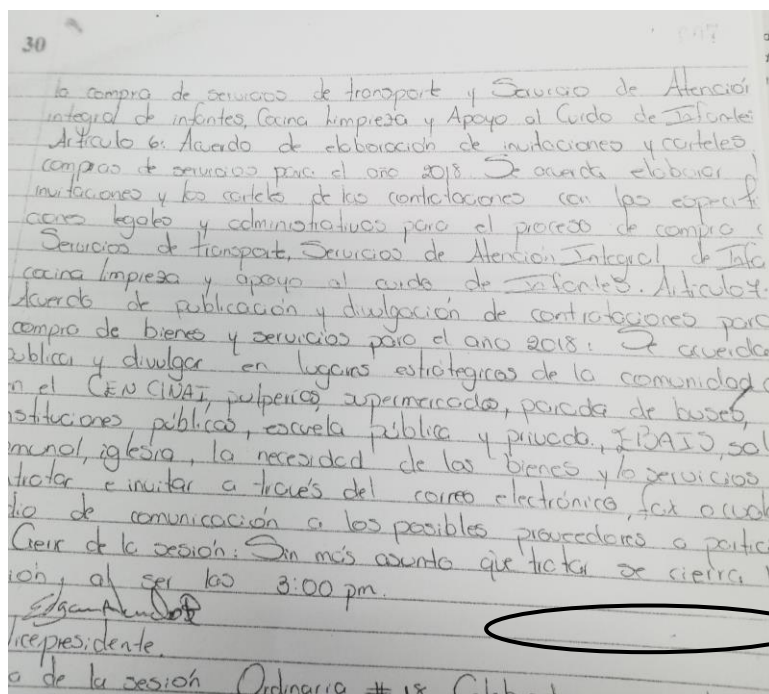 30
la compra de servicios de transporte y Servicio de Atención
integral de infantes, Cocina limpieza y Apoyo al Cuido de Infantes
Artículo 6: Acuerdo de elaboración de invitaciones y carteles
compras de servicios para el año 2018. Se acuerda elaborar
invitaciones y los carteles de las contrataciones con las especifi
aciones legales y administrativos para el proceso de compra
Servicios de transporte, Servicios de Atención Integral de Infa
cocina limpieza y apoyo al cuido de Infantes. Artículo 7.
Acuerdo de publicación y divulgación de contrataciones para
compra de bienes y servicios para el año 2018: Se acuerda
ublicar y divulgar en lugares estrategicos de la comunidad
n el CEN CINAI, pulperias, supermercados, parada de buses,
stituciones públicas, escuela pública y privada, EBAIS, sal
munal, iglesia, la necesidad de los bienes y lo servicios
tratar e invitar a través del correo electrónico, fax o cual
dio de comunicación a los posibles proveedores a partic
Cierre de la sesión: Sin más asunto que tratar se cierra
ión, al ser las 3:00 pm.
Vicepresidente.
a de la sesión Ordinaria # 18